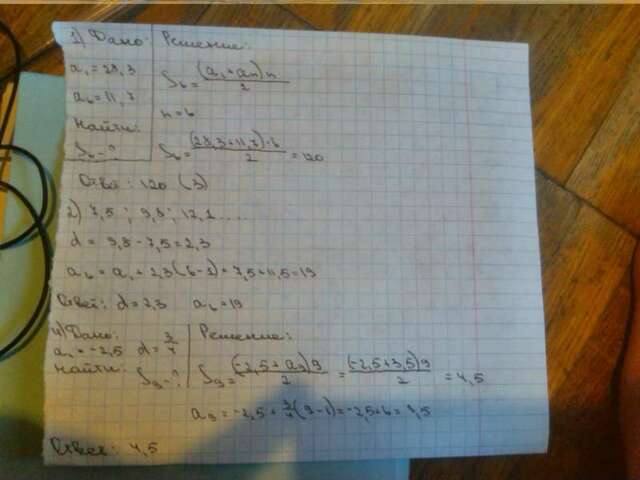 1) Дано: Решение:
a₁ = 28,3 S₆ = (a₁ + aₙ)n / 2
a₆ = 11,7 n = 6
Найти:
S₆ - ? S₆ = (28,3 + 11,7) · 6 / 2 = 120
Ответ: 120 (3)
2) 7,5 ; 9,8 ; 12,1 ....
d = 9,8 - 7,5 = 2,3
a₆ = a₁ + 2,3(6 - 1) = 7,5 + 11,5 = 19
Ответ: d = 2,3 a₆ = 19
4) Дано: Решение:
a₁ = -2,5 d = 3/4
Найти: S₉ - ? S₉ = (-2,5 + a₉)9 / 2 = (-2,5 + 3,5)9 / 2 = 4,5
a₉ = -2,5 + 3/4(9 - 1) = -2,5 + 6 = 3,5
Ответ: 4,5